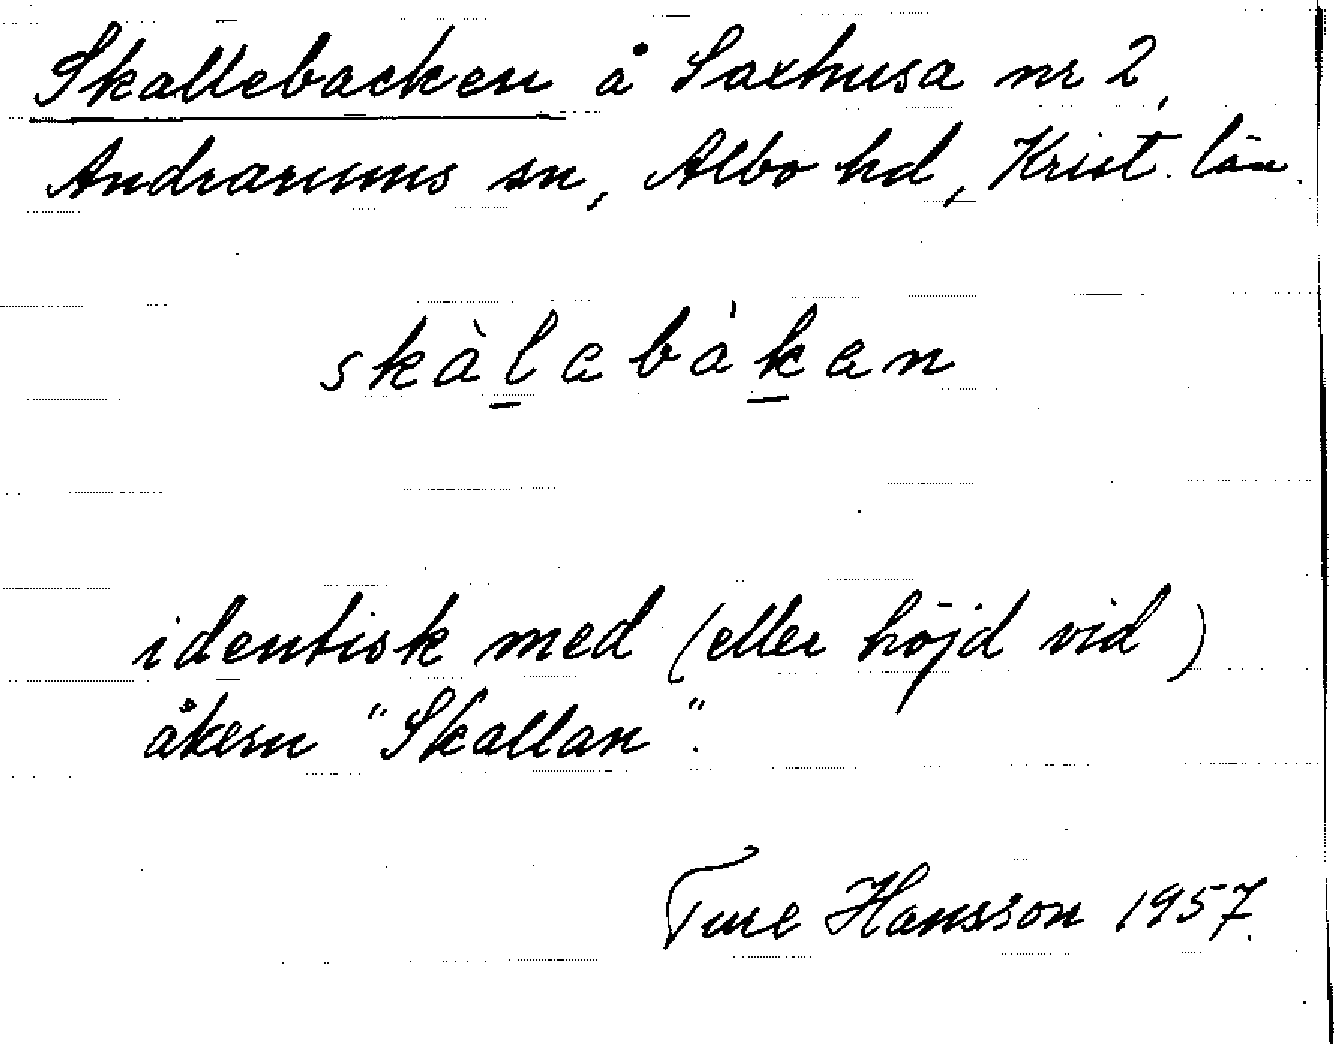 Skallebacken å Saxhusa nr 2,
Andrarums sn, Albo hd, Krist. län.
skàlabákan
identisk med (eller höjd vid)
åkern "Skallan".
Ture Hansson 1957.